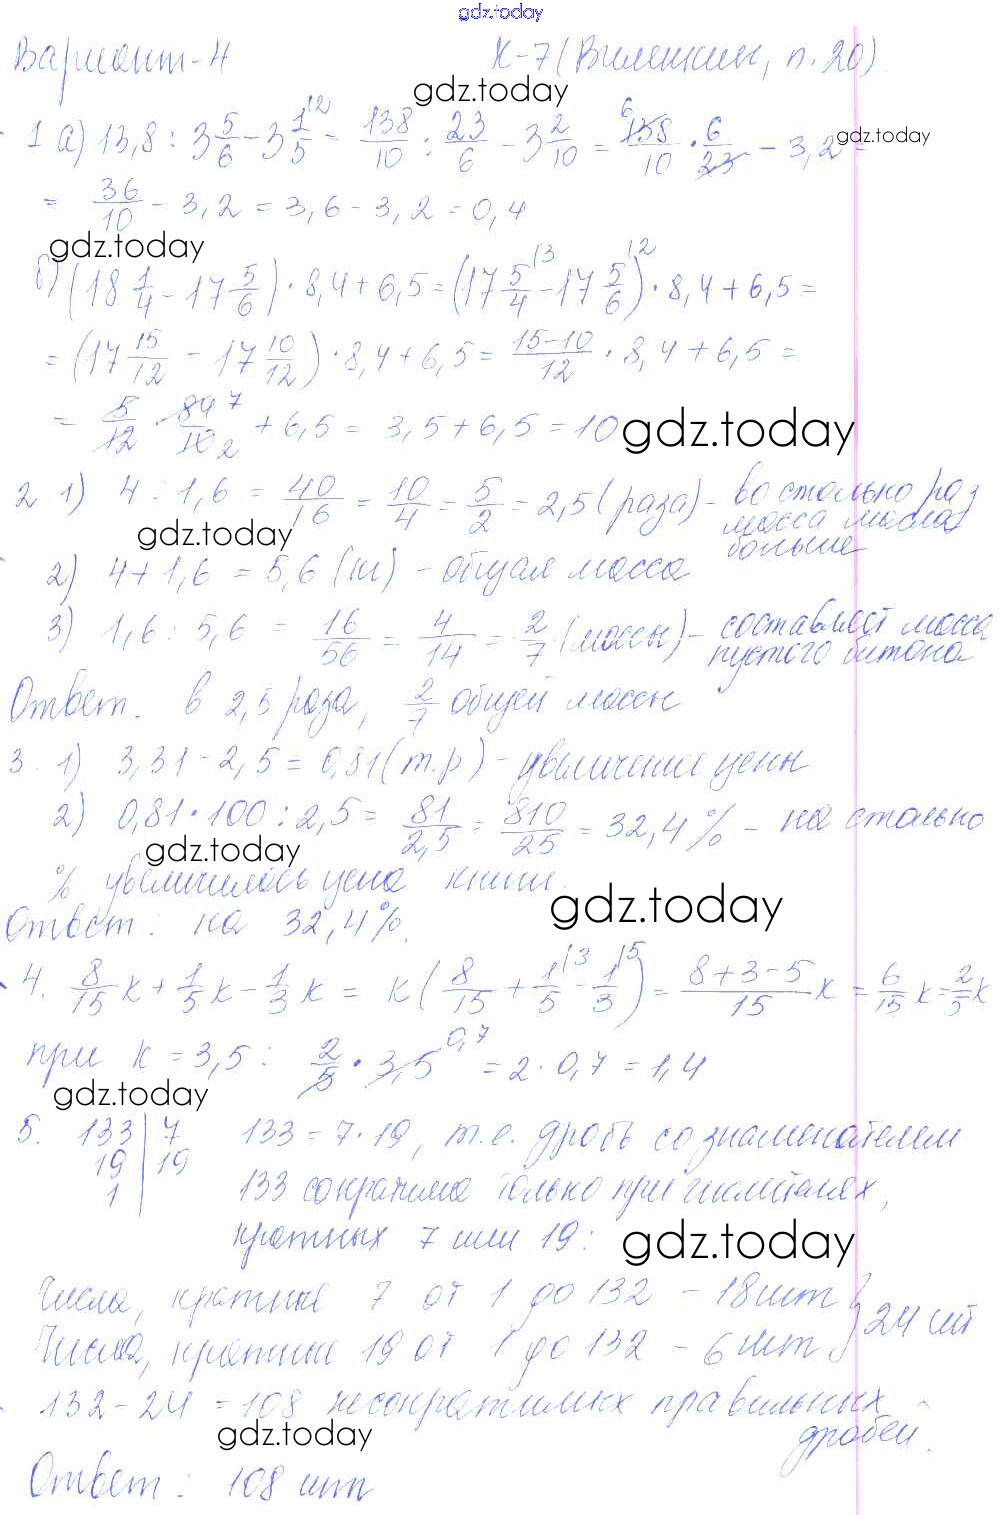 gdz.today
Вариант-4 К-7 (Виленкин, п.20)
gdz.today
1 а) 13,8 : 3 5/6 - 3 1/5 |2 = 138/10 : 23/6 - 3 2/10 = 6 138/10 · 6/23 - 3,2 =
gdz.today
= 36/10 - 3,2 = 3,6 - 3,2 = 0,4
gdz.today
б) (18 1/4 - 17 5/6) · 8,4 + 6,5 = (17 5/4 |3 - 17 5/6 |2) · 8,4 + 6,5 =
= (17 15/12 - 17 10/12) · 8,4 + 6,5 = 15-10/12 · 8,4 + 6,5 =
= 5/12 · 84 7/10 2 + 6,5 = 3,5 + 6,5 = 10
gdz.today
2 1) 4 : 1,6 = 40/16 = 10/4 = 5/2 = 2,5 (раза) - во столько раз
масса масла
больше
gdz.today
2) 4 + 1,6 = 5,6 (кг) - общая масса
3) 1,6 : 5,6 = 16/56 = 4/14 = 2/7 (массы) - составляет масса
пустого битона
Ответ. в 2,5 раза, 2/7 общей массы
3. 1) 3,31 - 2,5 = 0,81 (т.р) - увеличение цены
2) 0,81 · 100 : 2,5 = 81/2,5 = 810/25 = 32,4 % - на столько
gdz.today
% увеличилась цена книги.
gdz.today
Ответ: на 32,4%.
4. 8/15 к + 1/5 к - 1/3 к = к (8/15 + 1/5 |3 - 1/3 |5) = 8+3-5/15 к = 6/15 к = 2/5 к
при к = 3,5 : 2/5 · 3,5 0,7 = 2 · 0,7 = 1,4
gdz.today
5. 133 | 7 133 = 7 · 19, т.е. дробь со знаменателем
19 | 19
1 | 133 сократима только при числителях,
кратных 7 или 19:
gdz.today
Числа, кратные 7 от 1 до 132 - 18 шт } 24 шт
Числа, кратные 19 от 1 до 132 - 6 шт
132 - 24 = 108 несократимых правильных
дробей.
gdz.today
Ответ: 108 шт